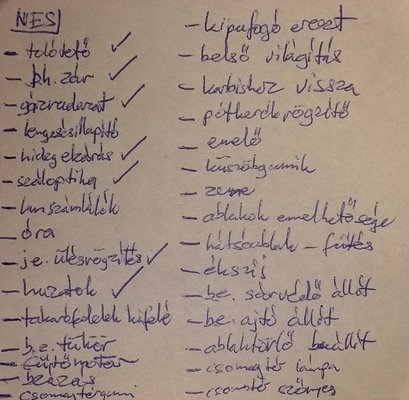 NES
- tolóvető ✓
- ph. zár ✓
- gázrudazat ✓
- lengéscsillapító
- hideg elzárás ✓
- száloptika ✓
- km számlálók
- óra
- je. ülésrögzítés ✓
- huzatok ✓
- takarófedelek kifelé
- b.e. tükör
- fűtőmotor
- beázás
- csomagtérgumi
- kipufogó ereszt
- belső világítás
- karbishoz vissza
- pótkerék rögzítő
- emelő
- küszöbgumik
- zene
- ablakok emelhetősége
- hátsóablak - fűtés
- ékszíj
- be. sárvédő állít
- be. ajtó állít
- ablaktörlő beállít
- csomagtér lámpa
- csomstó szőnyeg